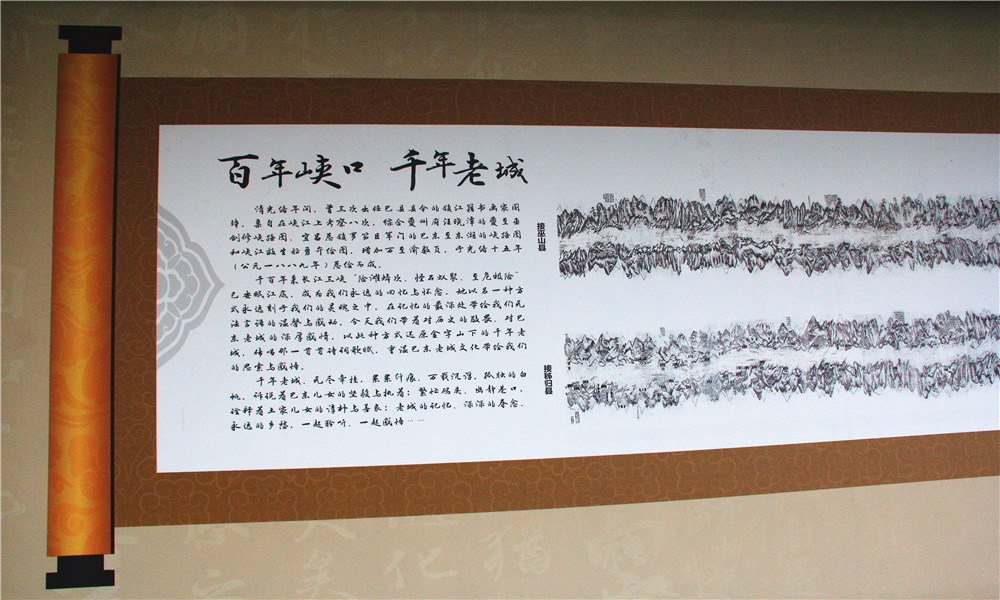 百年峡口 千年老城
清光绪年间，曾三次出任巴县县令的镇江籍书画家国
璋，亲自在峡江上考察八次，综合夔州府汪晓潭的夔至巫
创修峡路图、宜昌总镇罗笛臣军门的巴东至东湖的峡路图
和峡江救生船勇开绘图，增加万至渝数页，于光绪十五年
（公元一八八九年）总绘而成。
千百年来长江三峡“险滩鳞次，怪石奴聚，至危极险”
已安眠江底，成为我们永远的回忆与怀念，她以另一种方
式永远刻于我们的灵魂之中，在记忆的最深处带给我们无
法言语的温馨与感动，今天我们带着对历史的敬畏、对巴
东老城的深厚感情，以此种方式还原金字山下的千年老
城，传唱那一首首诗词歌赋，重温巴东老城文化带给我们
的思索与感悟。
千年老城，无尽牵挂，累累纤痕，万载沉浮，孤独的白
帆，诉说着巴东儿女的坚毅与执着；繁忙码头，幽静巷口，
诠释着土家儿女的淳朴与善良；老城的记忆，深深的眷恋，
永远的乡愁，一起聆听，一起感悟……
接巫山县
接秭归县